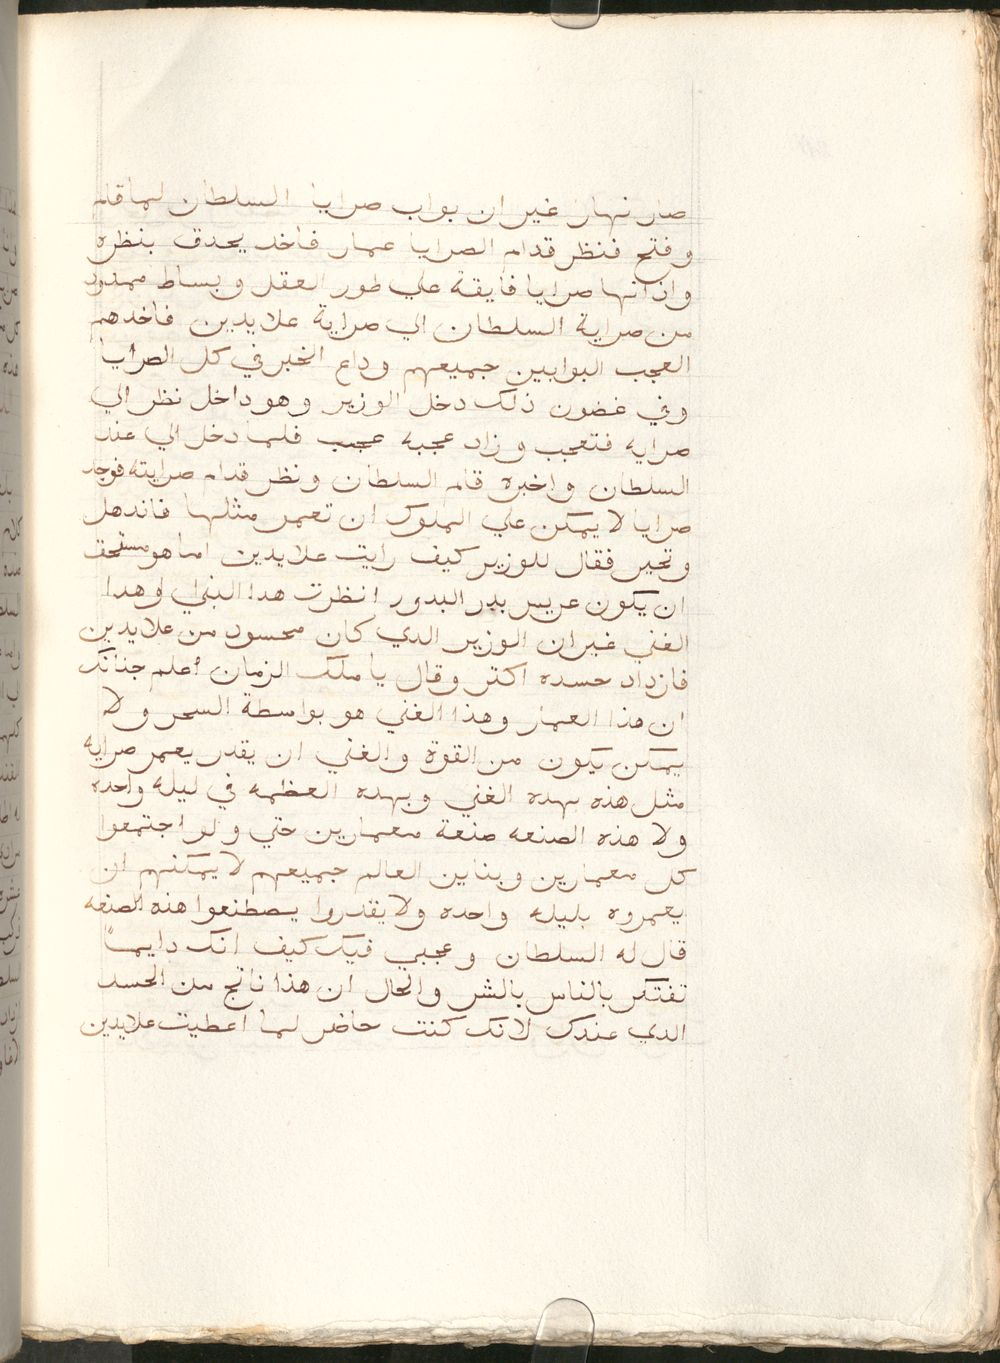 صار نهار غير ان بواب صرايا السلطان لما قام
وفتح فنظر قدام الصرايا عمار فاخد يحدق بنظره
واذ انها صرايا فايقة علي طور العقل وبساط ممدود
من صراية السلطان الي صراية علايدين فاخدهم
العجب البوابين جميعهم وداع الخبر في كل الصرايا
وفي غضون ذلك دخل الوزير وهو داخل نظر الي
صرايه فتعجب وزاد عجبه عجب فلما دخل الي عند
السلطان واخبره قام السلطان ونظر قدام صرايته فوجد
صرايا لا يمكن علي الملوك ان تعمر مثلها فاندهل
وتحير فقال للوزير كيف رايت علايدين اما هو مستحق
ان يكون عريس بدر البدور انظرت هدا البني وهدا
الغني غير ان الوزير الدي كان محسود من علايدين
فازداد حسده اكتر وقال يا ملك الزمان اعلم جنانك
ان هذا العمار وهذا الغني هو بواسطة السحر ولا
يمكن يكون من القوة والغني ان يقدر يعمر صرايه
مثل هذه بهده الغني وبهده العظمه في ليله واحده
ولا هذه الصنعه صنعة معمارين حتي ولو اجتمعوا
كل معمارين وبناين العالم جميعهم لا يمكنهم ان
يعمروه بليله واحده ولا يقدروا يصطنعوا هذه الصنعه
قال له السلطان وعجبي فيك كيف انك دايماً
تفتكر بالناس بالشر والحال ان هذا ناتج من الحسد
الدي عندك لانك كنت حاضر لما اعطيت علايدين